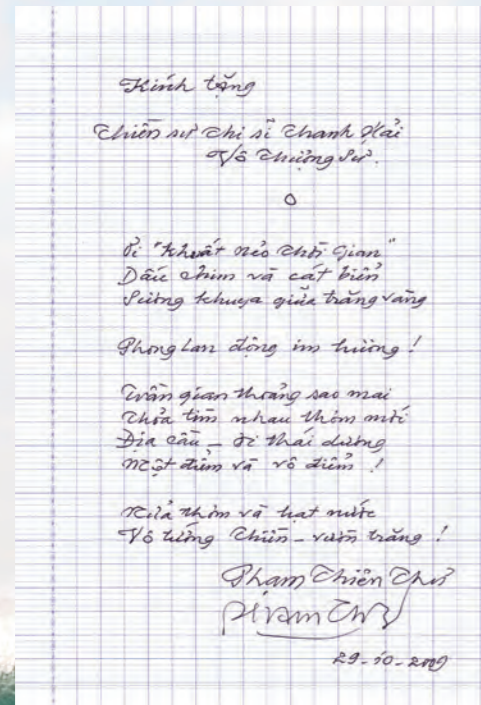 Kính tặng
Thiền sư Thi sĩ Thanh Hải
Vô Thượng Sư.
Đi "khuất nẻo Thời Gian"
Dấu chim và cát biển
Sương khuya giữa trăng vàng
Phong Lan động im hương!
Trần gian thoảng sao mai
Thỏa tìm nhau thơm môi
Địa cầu – đi thái dương
Một điểm và vô điểm!
Nửa thơm và hạt nước
Vô tướng Thiền – vườn trăng!
Phạm Thiên Thư
29-10-2009